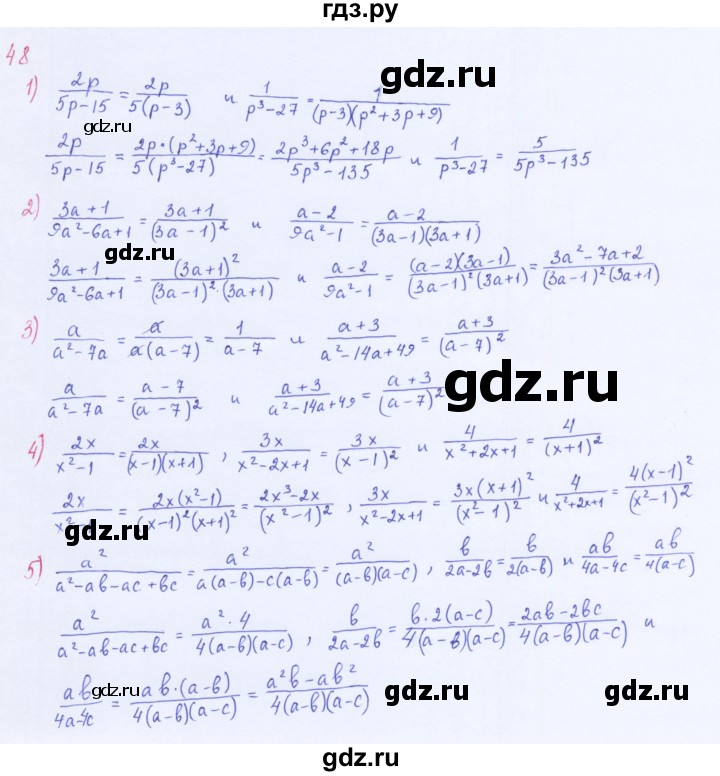 гдз.ру
48
gdz.ru
1) 2p/(5p-15) = 2p/(5(p-3)) и 1/(p³-27) = 1/((p-3)(p²+3p+9))
gdz.ru
2p/(5p-15) = 2p·(p²+3p+9)/(5(p³-27)) = (2p³+6p²+18p)/(5p³-135) и 1/(p³-27) = 5/(5p³-135)
2) (3a+1)/(9a²-6a+1) = (3a+1)/(3a-1)² и (a-2)/(9a²-1) = (a-2)/((3a-1)(3a+1))
gdz.ru
(3a+1)/(9a²-6a+1) = (3a+1)²/((3a-1)²·(3a+1)) и (a-2)/(9a²-1) = (a-2)(3a-1)/((3a-1)²(3a+1)) = (3a²-7a+2)/((3a-1)²(3a+1))
3) a/(a²-7a) = a/(a(a-7)) = 1/(a-7) и (a+3)/(a²-14a+49) = (a+3)/(a-7)²
gdz.ru
a/(a²-7a) = (a-7)/(a-7)² и (a+3)/(a²-14a+49) = (a+3)/(a-7)²
4) 2x/(x²-1) = 2x/((x-1)(x+1)), 3x/(x²-2x+1) = 3x/(x-1)² и 4/(x²+2x+1) = 4/(x+1)²
2x/ = 2x(x²-1)/((x-1)²(x+1)²) = (2x³-2x)/(x²-1)², 3x/(x²-2x+1) = 3x(x+1)²/(x²-1)² и 4/(x²+2x+1) = 4(x-1)²/(x²-1)²
gdz.ru
5) a²/(a²-ab-ac+bc) = a²/(a(a-b)-c(a-b)) = a²/((a-b)(a-c)), b/(2a-2b) = b/(2(a-b)) и ab/(4a-4c) = ab/(4(a-c))
gdz.ru
a²/(a²-ab-ac+bc) = a²·4/(4(a-b)(a-c)), b/(2a-2b) = b·2(a-c)/(4(a-b)(a-c)) = (2ab-2bc)/(4(a-b)(a-c)) и
gdz.ru
ab/(4a-4c) = ab·(a-b)/(4(a-b)(a-c)) = (a²b-ab²)/(4(a-b)(a-c))
gdz.ru
gdz.ru